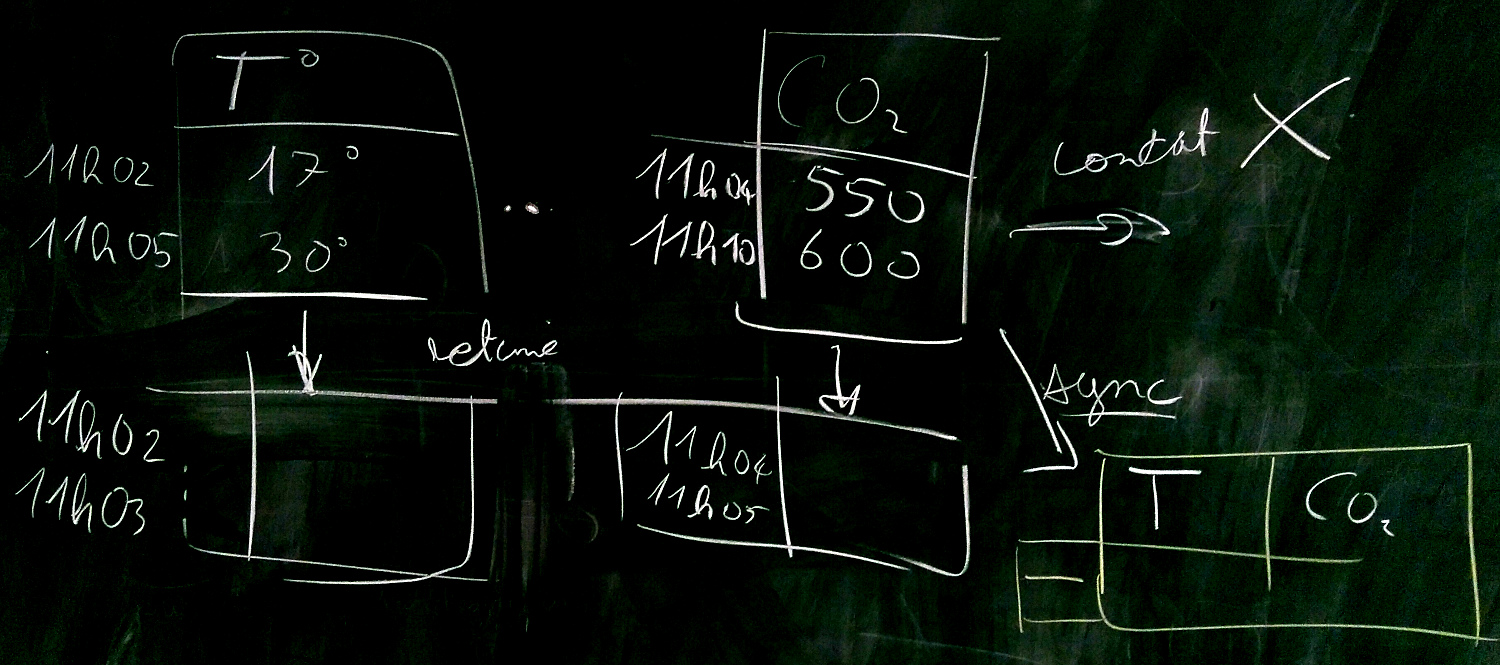 T°
11h02 17°
11h05 30°
...
CO₂
11h04 550
11h10 600
concat X
retime
11h02
11h03
11h04
11h05
sync
T CO₂